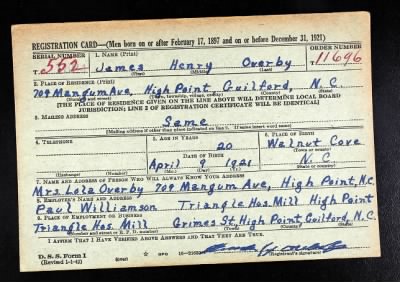 REGISTRATION CARD—(Men born on or after February 17, 1897 and on or before December 31, 1921)
SERIAL NUMBER 1. NAME (Print) ORDER NUMBER
T 552 James Henry Overby 11696
(First) (Middle) (Last)
2. PLACE OF RESIDENCE (Print)
709 Mangum Ave, High Point Guilford, N.C.
(Number and street) (Town, township, village, or city) (County) (State)
[THE PLACE OF RESIDENCE GIVEN ON THE LINE ABOVE WILL DETERMINE LOCAL BOARD
JURISDICTION; LINE 2 OF REGISTRATION CERTIFICATE WILL BE IDENTICAL]
3. MAILING ADDRESS
Same
[Mailing address if other than place indicated on line 2. If same insert word same]
4. TELEPHONE 5. AGE IN YEARS 6. PLACE OF BIRTH
20 Walnut Cove
DATE OF BIRTH (Town or county)
April 9 1921 N.C.
(Exchange) (Number) (Mo.) (Day) (Yr.) (State or country)
7. NAME AND ADDRESS OF PERSON WHO WILL ALWAYS KNOW YOUR ADDRESS
Mrs. Lola Overby 709 Mangum Ave, High Point, N.C.
8. EMPLOYER'S NAME AND ADDRESS
Paul Williamson Triangle Hos. Mill High Point
9. PLACE OF EMPLOYMENT OR BUSINESS
Triangle Hos. Mill Grimes St. High Point, Guilford, N.C.
(Number and street or R. F. D. number) (Town) (County) (State)
I AFFIRM THAT I HAVE VERIFIED ABOVE ANSWERS AND THAT THEY ARE TRUE.
D. S. S. Form 1
(Revised 1-1-42) (over) GPO (Registrant's signature)